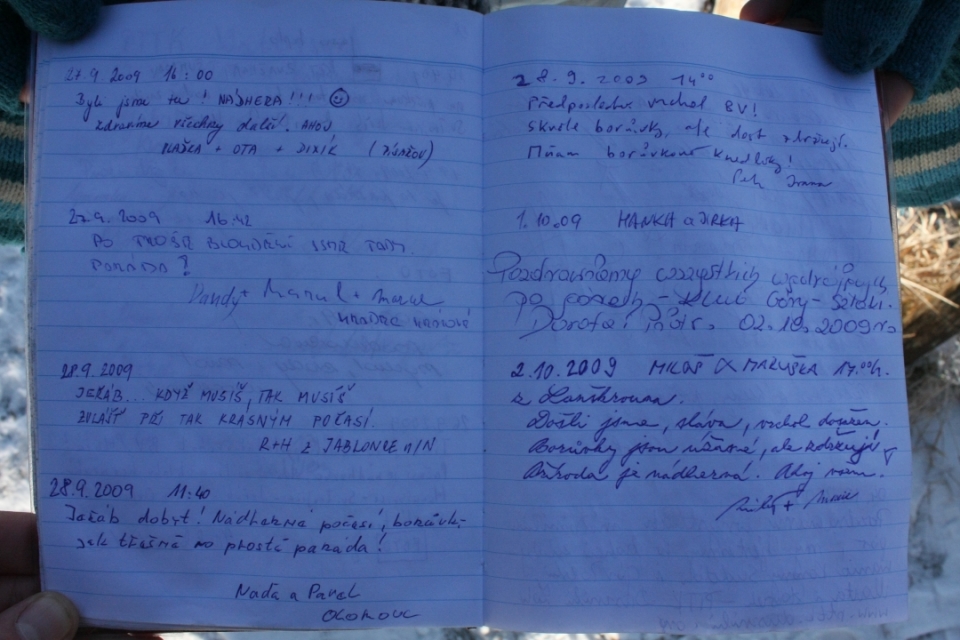 27.9.2009 16:00
Byli jsme tu! NÁDHERA!!!
Zdravíme všechny další! AHOJ
+ OTA + DIXÍK
27.9.2009 16:42
PO TROŠE BLOUDĚNÍ JSME TADY.
PARÁDA?
Dandy + + 
HRADEC KRÁLOVÉ
28.9.2009
JEŘÁB... KDYŽ MUSÍŠ, TAK MUSÍŠ
ZVLÁŠŤ PŘI TAK KRÁSNÝM POČASÍ.
R+H z JABLONCE n/N
28.9.2009 11:40
Jeřáb dobyt! Nádherné počasí, borůvky
jak třešně no prostě paráda!
Naďa a Pavel
OLOMOUC
28.9.2009 14⁰⁰
Předposlední vrchol BV!
Skvělé borůvky, ale dost zdržují.
Mňam borůvkové knedlíky!
Petr Ivana
1.10.09 HANKA a JIRKA
Pozdrawiamy wszystkich wędrujących
po górach - Klub Góry - Szlaki.
Dorota i Piotr. 02.10.2009 r.
2.10.2009 MILOŠ & MARUŠKA 17.00 h.
z Lanškrouna.
Došli jsme, sláva, vrchol dosažen.
Borůvky jsou úžasné, ale zdržují
Příroda je nádherná. Ahoj všem.